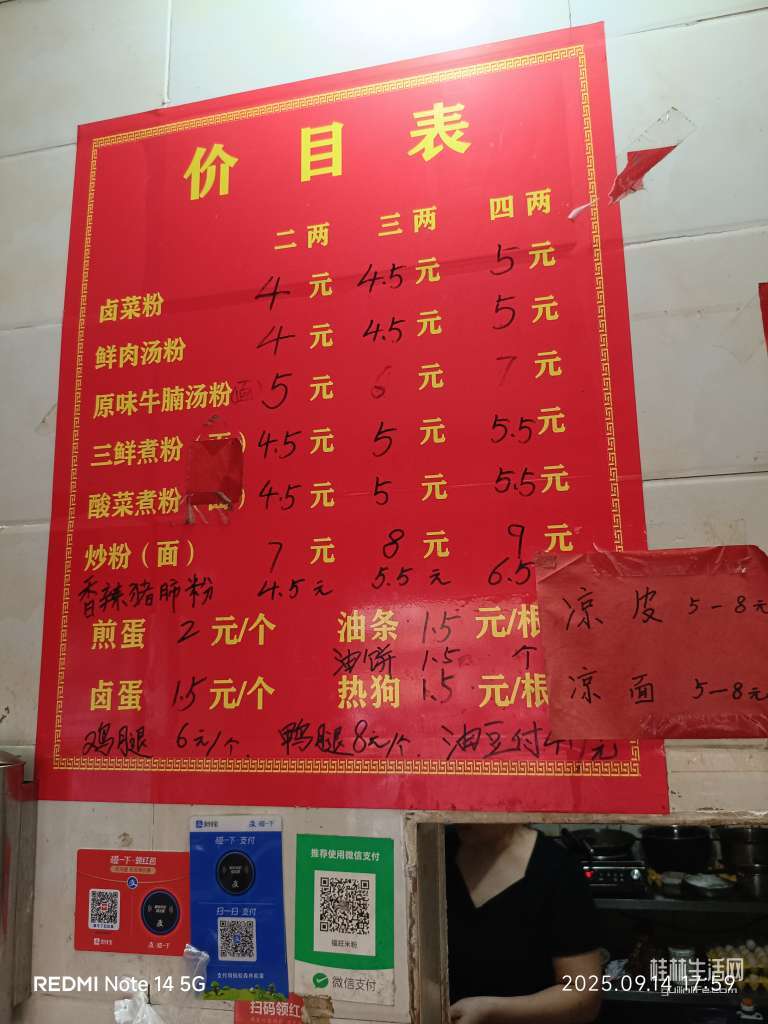 价目表
二两 三两 四两
卤菜粉 4元 4.5元 5元
鲜肉汤粉 4元 4.5元 5元
原味牛腩汤粉(面) 5元 6元 7元
三鲜煮粉(面) 4.5元 5元 5.5元
酸菜煮粉(面) 4.5元 5元 5.5元
炒粉(面) 7元 8元 9元
香辣猪肺粉 4.5元 5.5元 6.5
煎蛋 2元/个 油条 1.5元/根
油饼 1.5 个
卤蛋 1.5元/个 热狗 1.5元/根
鸡腿 6元/个. 鸭腿8元/个. 油豆付4个元
凉皮 5-8元
凉面 5-8元
碰一下·领红包
支付宝 碰一下
支付宝 碰一下
碰一下·支付
扫一扫·支付
推荐使用微信支付
福旺米粉
微信支付
扫码领红
REDMI Note 14 5G
桂林生活网
guilinlife.com
2025.09.14 17:59